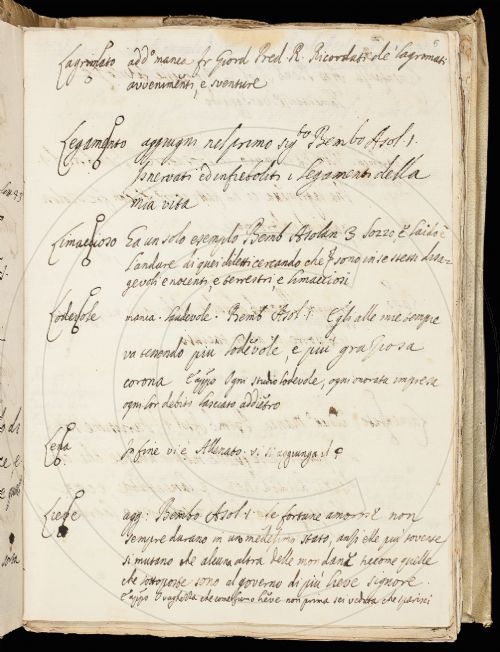 Lagrimato add.o manca fr Giord Pred. R. Ricordati de' lagrimati
avvenimenti, e sventure
Legamento aggiugni nel primo sig.to Bembo Asol. 1.
Snervati ed infieboliti i legamenti della
mia vita
Limaccioso Ha un solo esempio Bemb Asolan 3 Sozzo,
l'andare di quei diletti cercando che sono in se stessi disag-
gevoli e nocenti, e terrestri, e limacciosi
Lodevole manca. Laudevole. Bemb Asol. 1. Egli alle mie tempie
va tenendo più lodevole, e più graziosa
corona Ogni studio lodevole, ogni onorata impresa
ogni lor debito lasciato addietro
Lena In fine vi è Allenato. vi si aggiunga il
Lieve agg: Bembo Asol. 1. le fortune amorose non
sempre durano in un medesimo stato, anzi elle più sovente
si mutano che alcuna altra delle mondane siccome quelle
che sottoposte sono al governo di più lieve signore.
vaghezza che come fumo lieve non prima sei veduta che sparisci